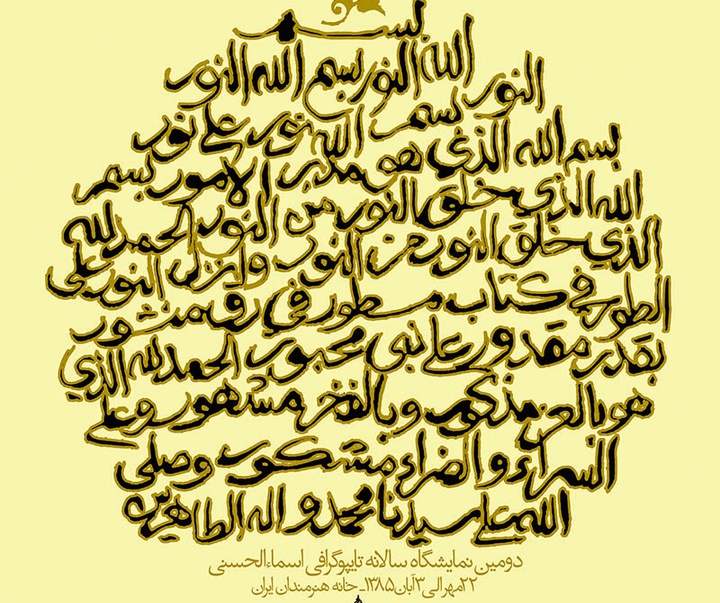 بسم
النور الله النور بسم الله النور
بسم الله نور علي نور
بسم الله الذي هو مدبر الامور بسم
الله الذي خلق النور من النور الحمد لله
الذي خلق النور من النور وانزل النور علي
الطور في كتاب مسطور في رق منشور
بقدر مقدور علي نبي محبور الحمد لله الذي
هو بالعز مذكور و بالفخر مشهور و علي
السراء و الضراء مشكور و صلي
الله علي سيدنا محمد و اله الطاهرين
دومین نمایشگاه سالانه تایپوگرافی اسماءالحسنی
۲۲مهر الی ۳ آبان ۱۳۸۵ـ خانه هنرمندان ایران